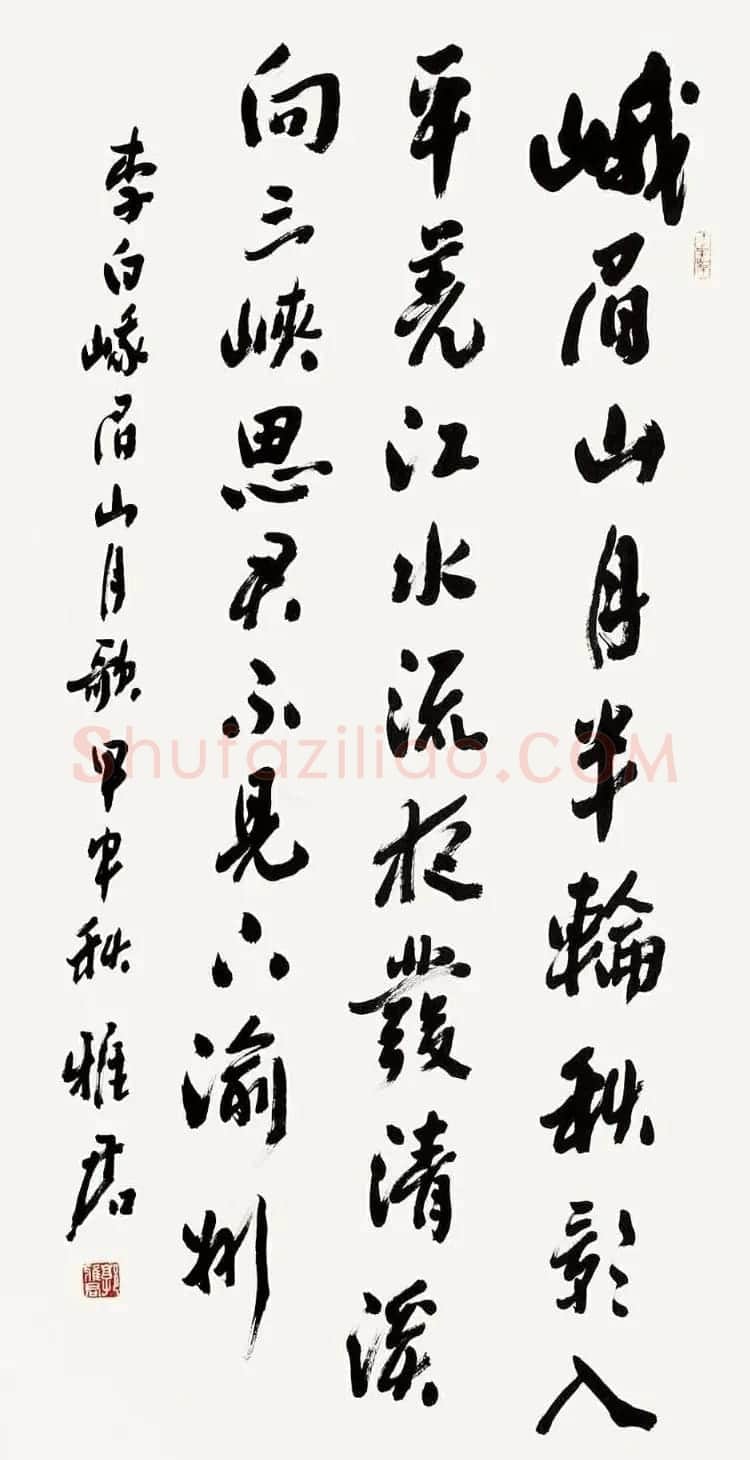 峨眉山月半輪秋影入
平羌江水流夜發清溪
向三峽思君不見下渝州
李白峨眉山月歌甲申秋雅君
Shufaziliao.COM